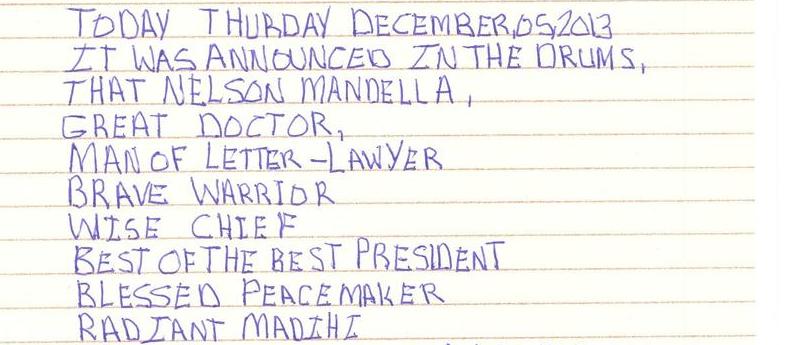 TODAY THURDAY DECEMBER,05,2013
IT WAS ANNOUNCED IN THE DRUMS,
THAT NELSON MANDELLA,
GREAT DOCTOR,
MAN OF LETTER-LAWYER
BRAVE WARRIOR
WISE CHIEF
BEST OF THE BEST PRESIDENT
BLESSED PEACEMAKER
RADIANT MADIHI